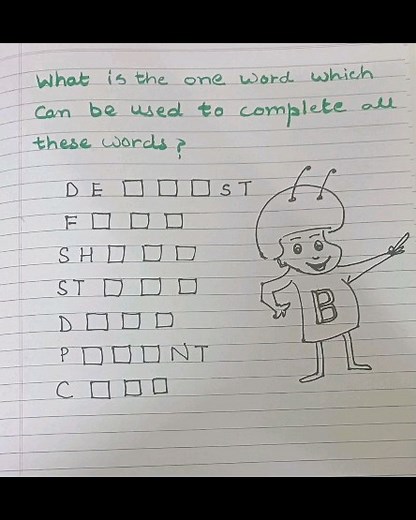 What is the one word which
can be used to complete all
these words?
D E □ □ □ S T
F □ □ □
S H □ □ □
S T □ □ □
D □ □ □
P □ □ □ N T
C □ □ □
B